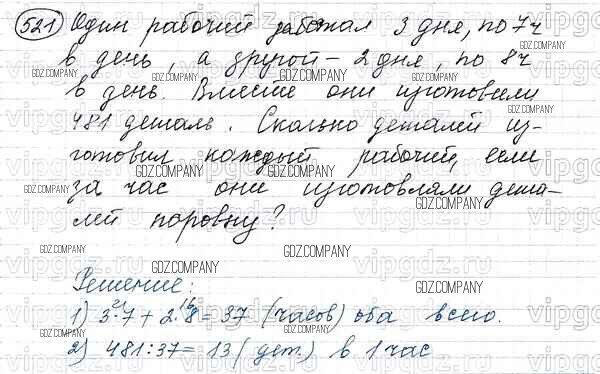 521 Один рабочий работал 3 дня, по 7ч
в день, а другой – 2 дня, по 8ч
в день. Вместе они изготовили
481 деталь. Сколько деталей из-
готовил каждый рабочий, если
за час они изготовляли дета-
лей поровну?
Решение:
1) 3·7 + 2·8 = 37 (часов) оба всего.
2) 481:37 = 13 (дет.) в 1 час